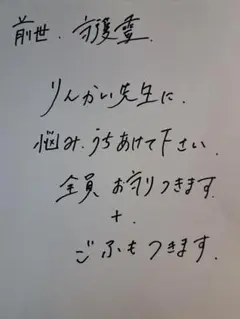 前世.守護霊.
りんかい先生に.
悩み.うちあけて下さい.
全員 お守りつきます
+.
ごふもつきます.